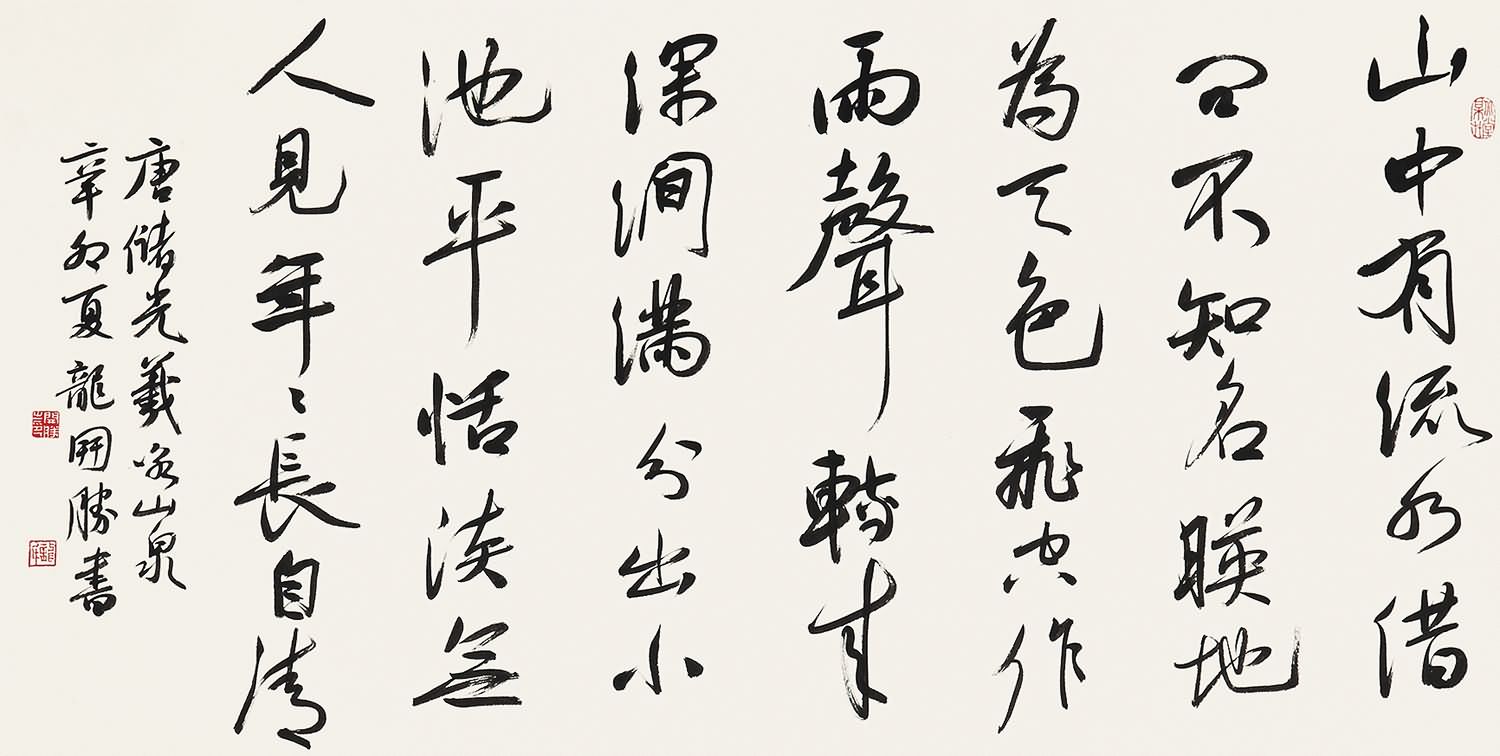 山中有流水借
問不知名暎地
為天色飛空作
雨聲轉來
深澗滿分出小
池平恬淡無
人見年〻長自清
唐儲光羲咏山泉
辛卯夏龍開勝書